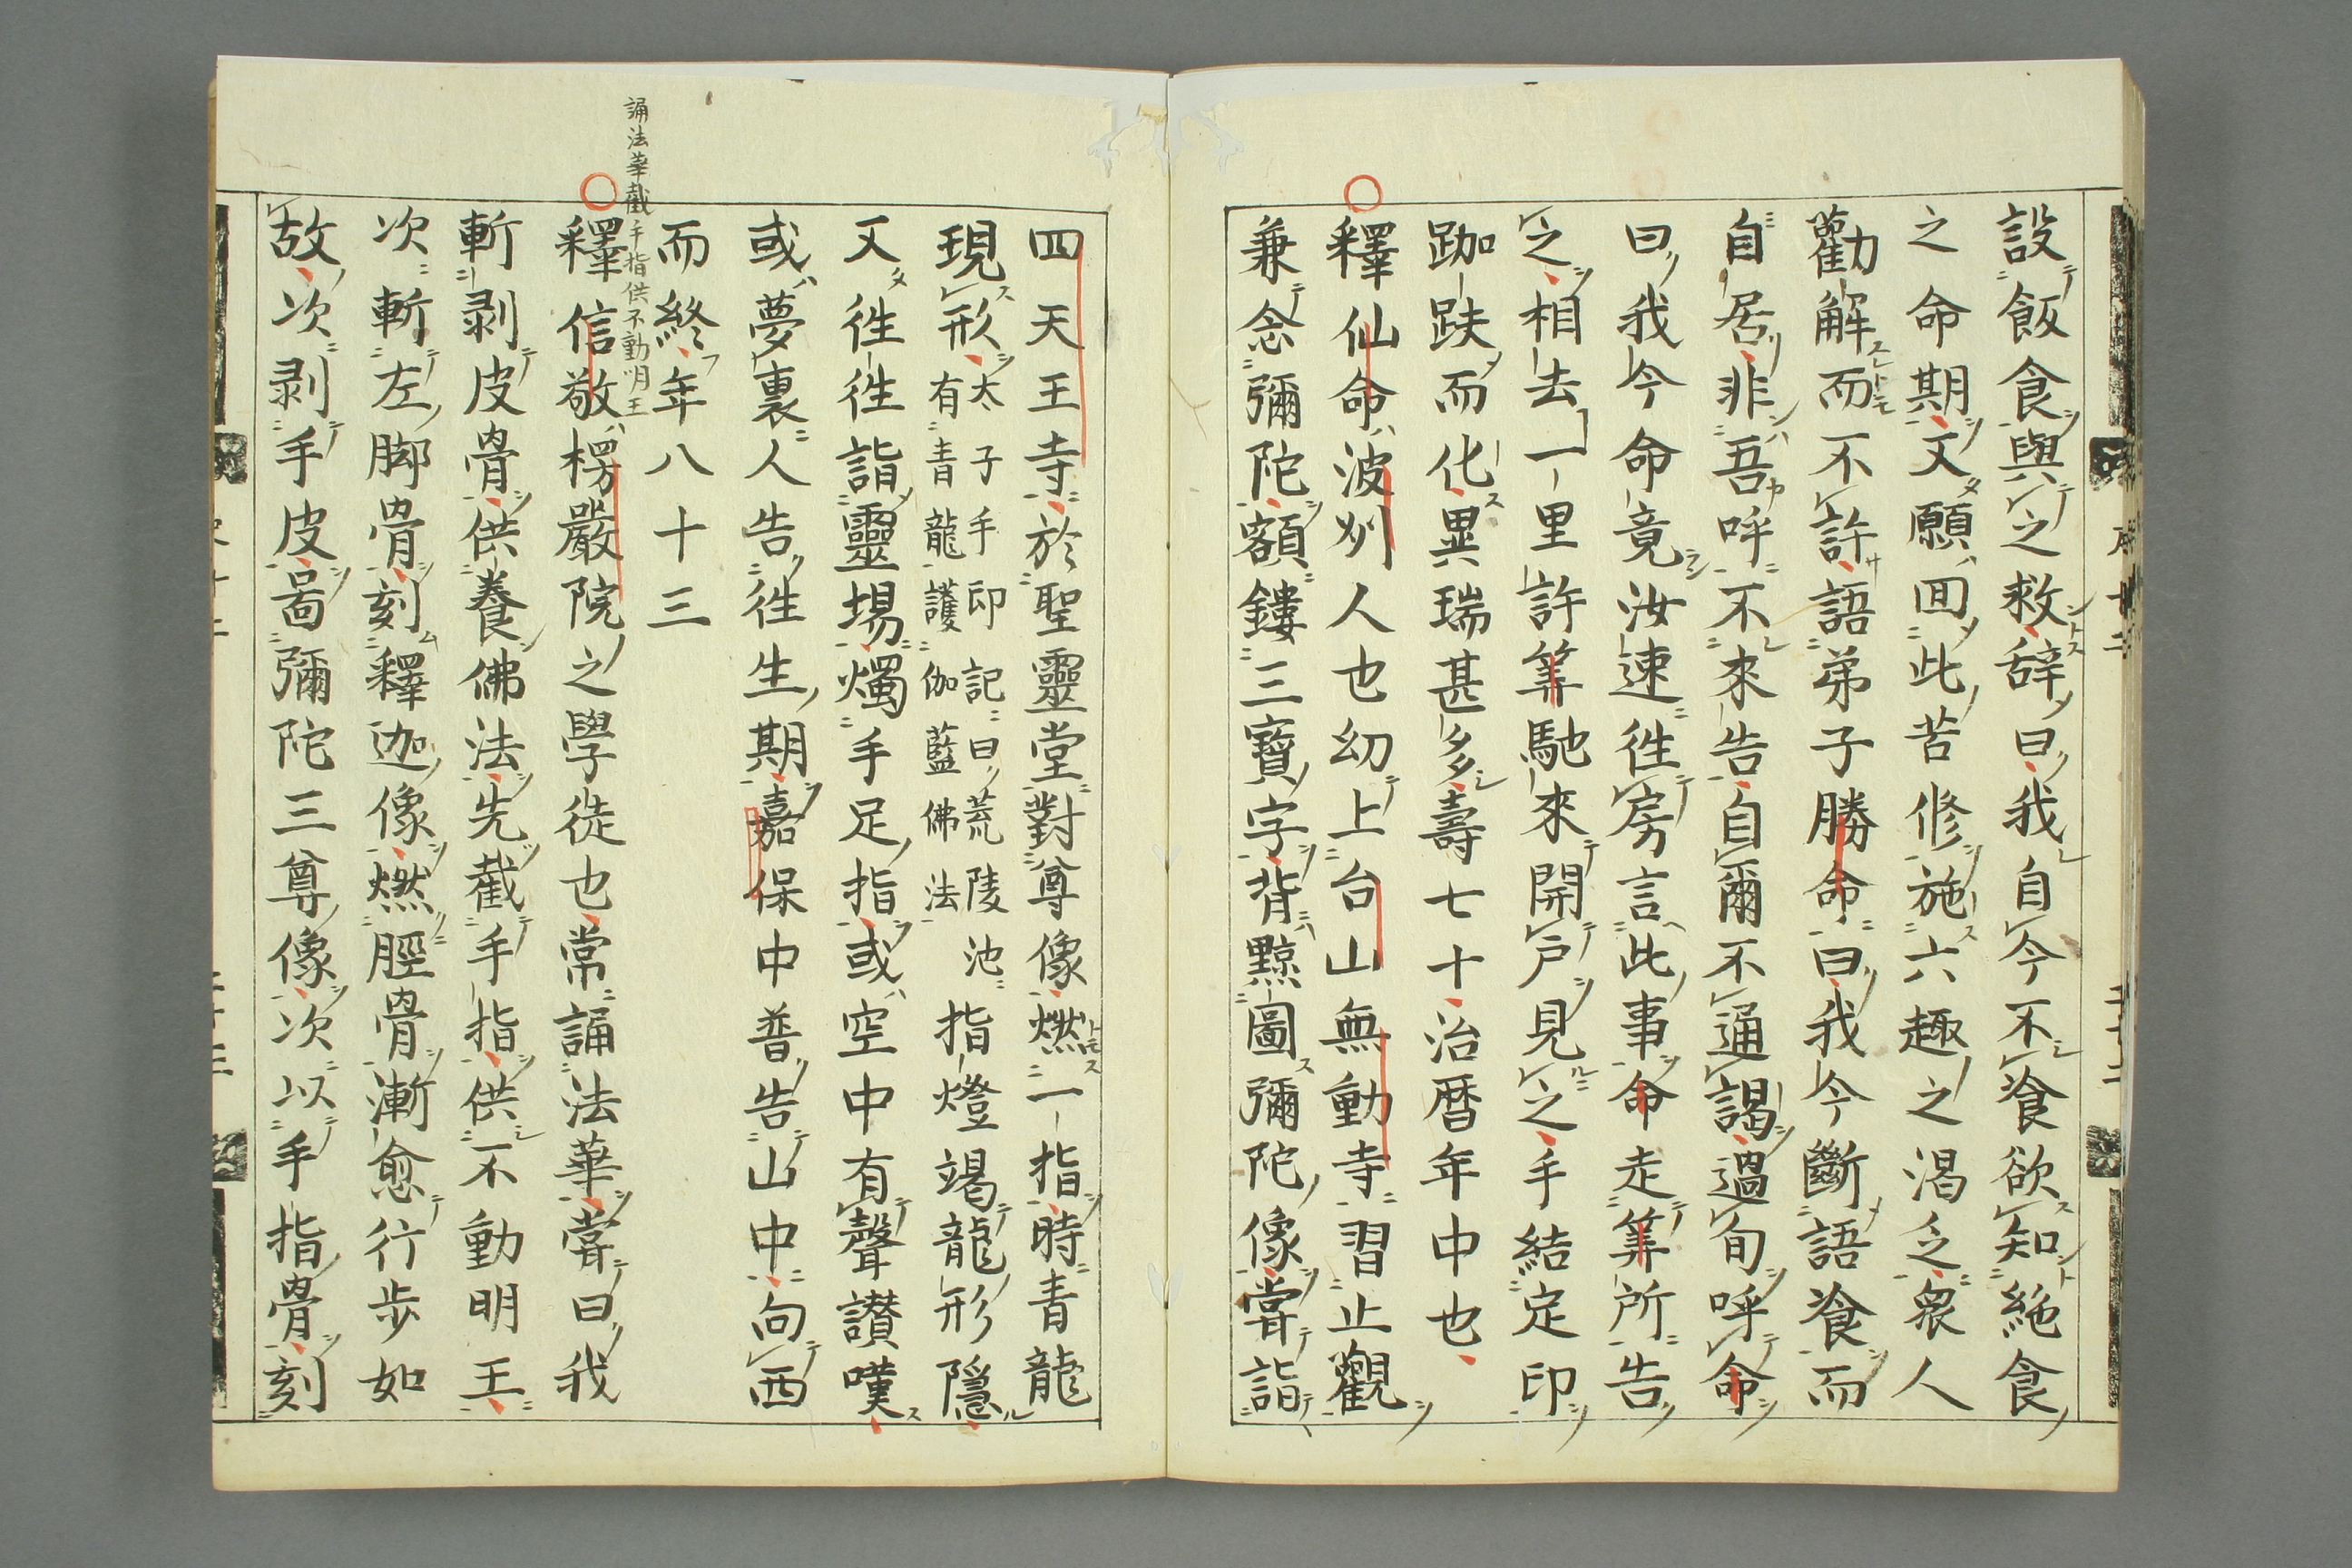 設飯食與之救辞曰我自今不飡欲知絶食
之命期又願回此苦修施六趣之渇乏衆人
勸解而不許語弟子勝命曰我今斷語飡而
自居非吾呼不來告自爾不通謁過旬呼命
曰我今命竟汝速徃房言此事命走筭所告
之相去一里許筭馳來開戸見之手結定印
跏趺而化異瑞甚多壽七十治暦年中也
釋仙命波刕人也幼上台山無動寺習止觀
兼念彌陀額鏤三寶字背黥圖彌陀像甞詣
四天王寺於聖靈堂對尊像燃一指時青龍
現形太子手印記曰荒陵池有青龍護伽藍佛法指燈竭龍形隱
又徃徃詣靈場燭手足指或空中有聲讃嘆
或夢裏人告徃生期嘉保中普告山中向西
而終年八十三
誦法華截手指供不動明王
釋信敬楞嚴院之學徒也常誦法華甞曰我
斬剥皮骨供養佛法先截手指供不動明王
次斬左脚骨刻釋迦像燃脛骨漸愈行歩如
故次剥手皮啚彌陀三尊像次以手指骨刻